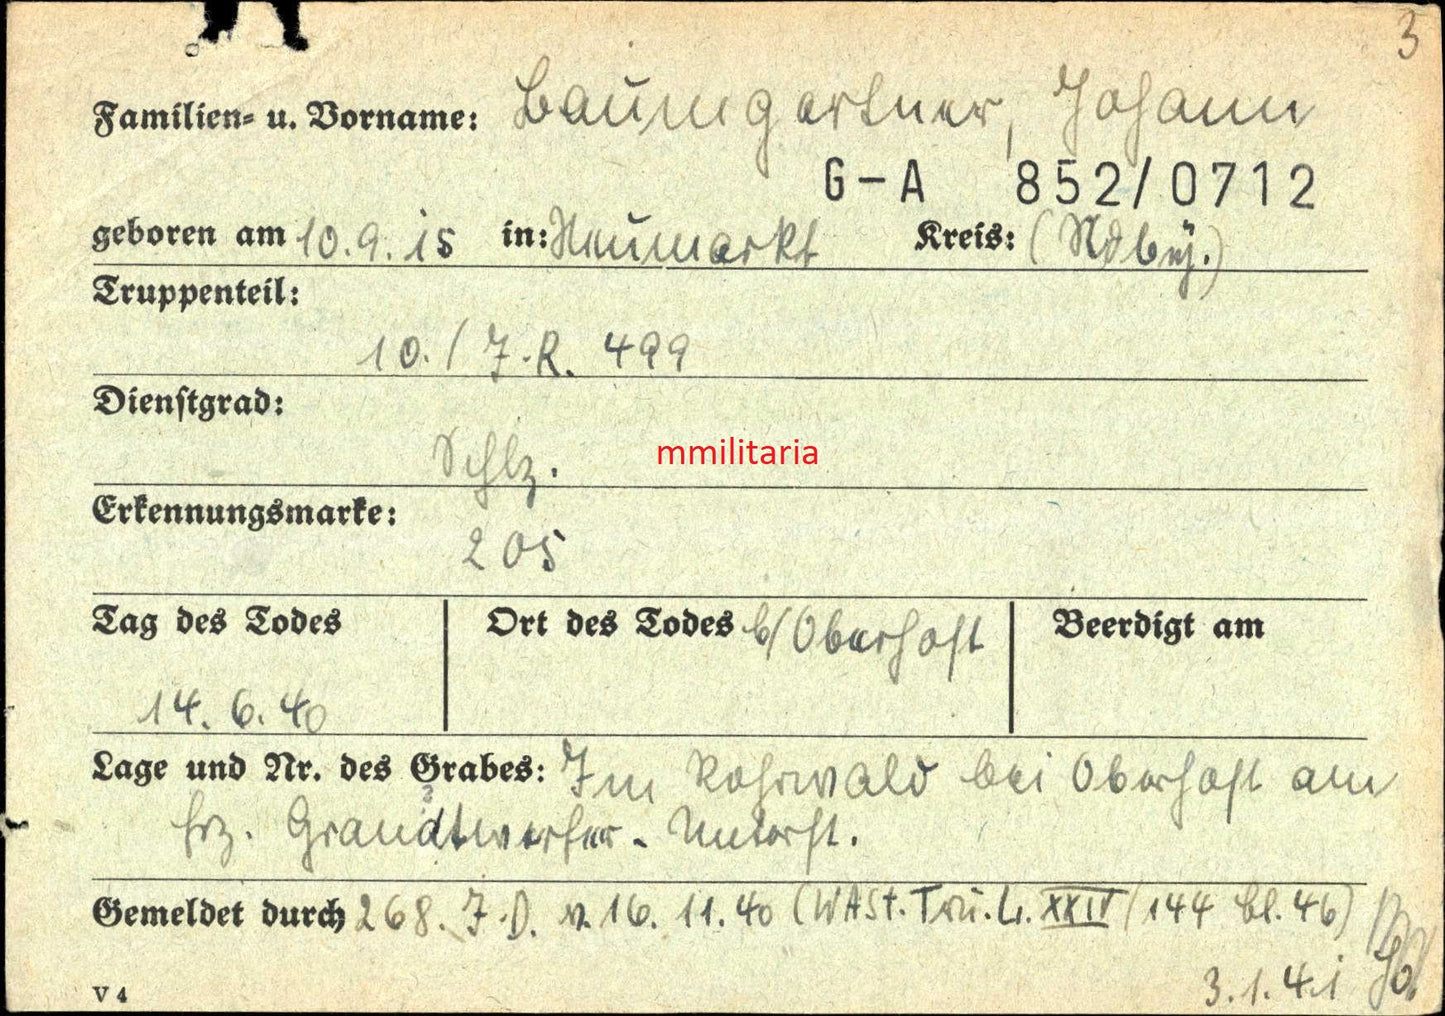 3
Familien- u. Vorname: Baumgartner, Johann
G-A 852/0712
geboren am 10.9.15 in: Neumarkt Kreis: (Ndbay.)
Truppenteil:
10./J.R. 499
Dienstgrad:
Schtz.
mmilitaria
Erkennungsmarke:
205
Tag des Todes Ort des Todes b/Oberhost Beerdigt am
14. 6. 40
Lage und Nr. des Grabes: Im Rohrwald bei Oberhost am
frz. Granatwerfer-Unterst.
Gemeldet durch 268. J.D. v. 16. 11. 40 (WASt. Tru.Li. XXIV/144 Bl. 46)
3.1.41
V 4